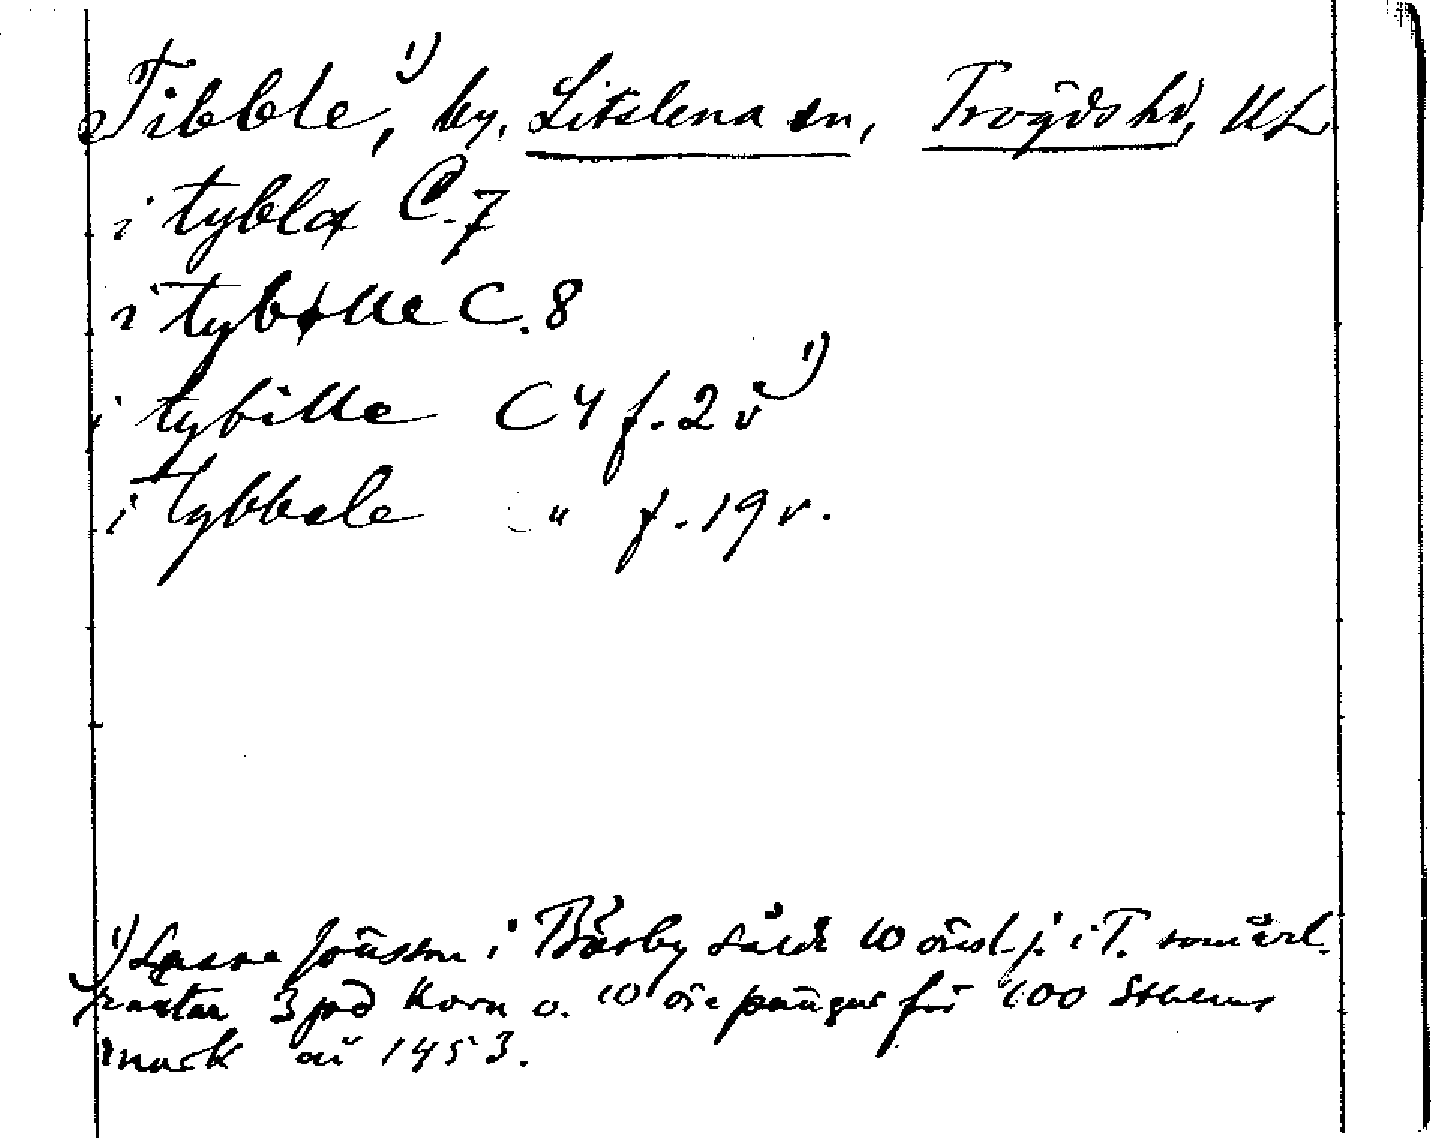 Tibble,¹⁾ by, Litslena sn, Trögds hd, UL
i tyblæ C.7
i tybille C.8
i tybille C4 f.2v¹⁾
i tybbele " f.19v.
¹⁾ Lasse Jönsson i Bärby sålde 10 öresl. j. i T. som årl.
räntar 3 pd korn o. 10 öre pänngar för 100 Sthlms
mark år 1453.